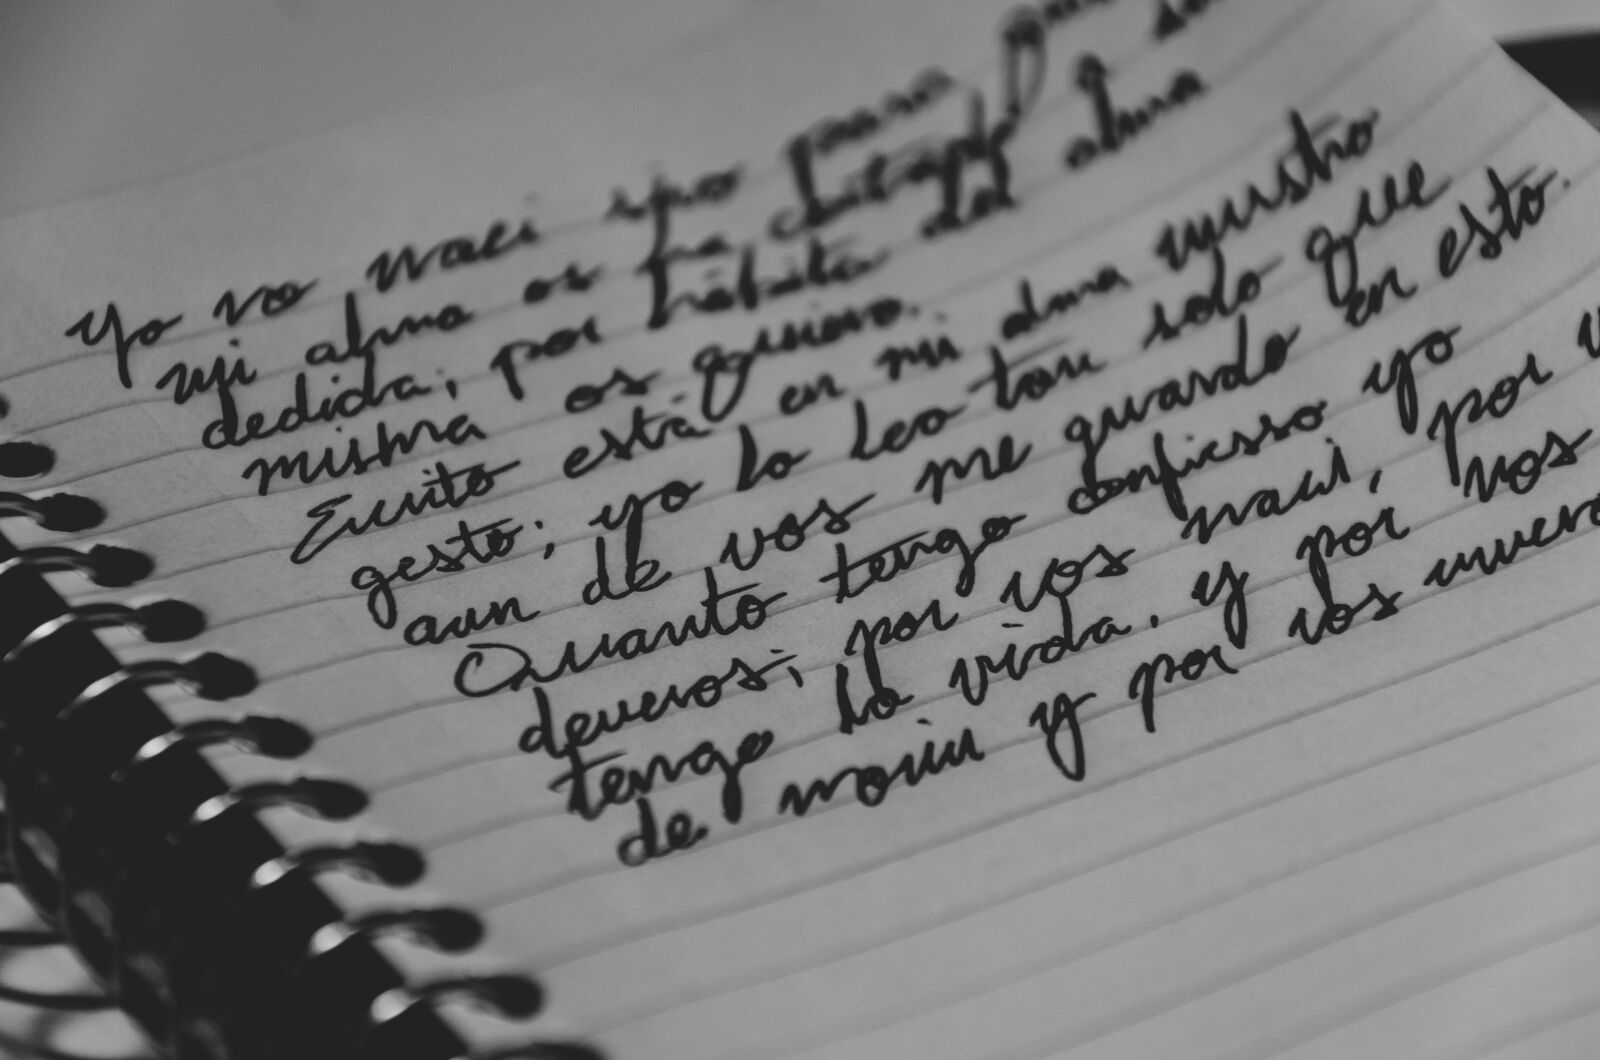 Yo no naci sino para
mi alma os ha cortado
dedida; por hábito del alma
misma os quiero.
Escrito está en mi alma vuestro
gesto; yo lo leo tan solo que
aun de vos me guardo en esto.
Quanto tengo confiesso yo
deveros; por vos naci, por
tengo la vida. y por vos
de morir y por vos muero